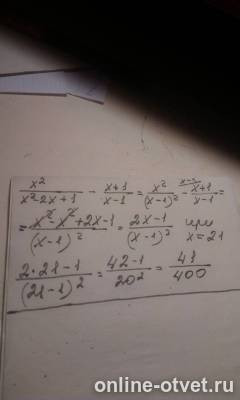 x²/(x²-2x+1) - (x+1)/(x-1) = x²/(x-1)² - x-1\(x+1)/(x-1) =
= (x²-x²+2x-1)/(x-1)² = (2x-1)/(x-1)² при x=21
(2*21-1)/(21-1)² = (42-1)/20² = 41/400
online-otvet.ru